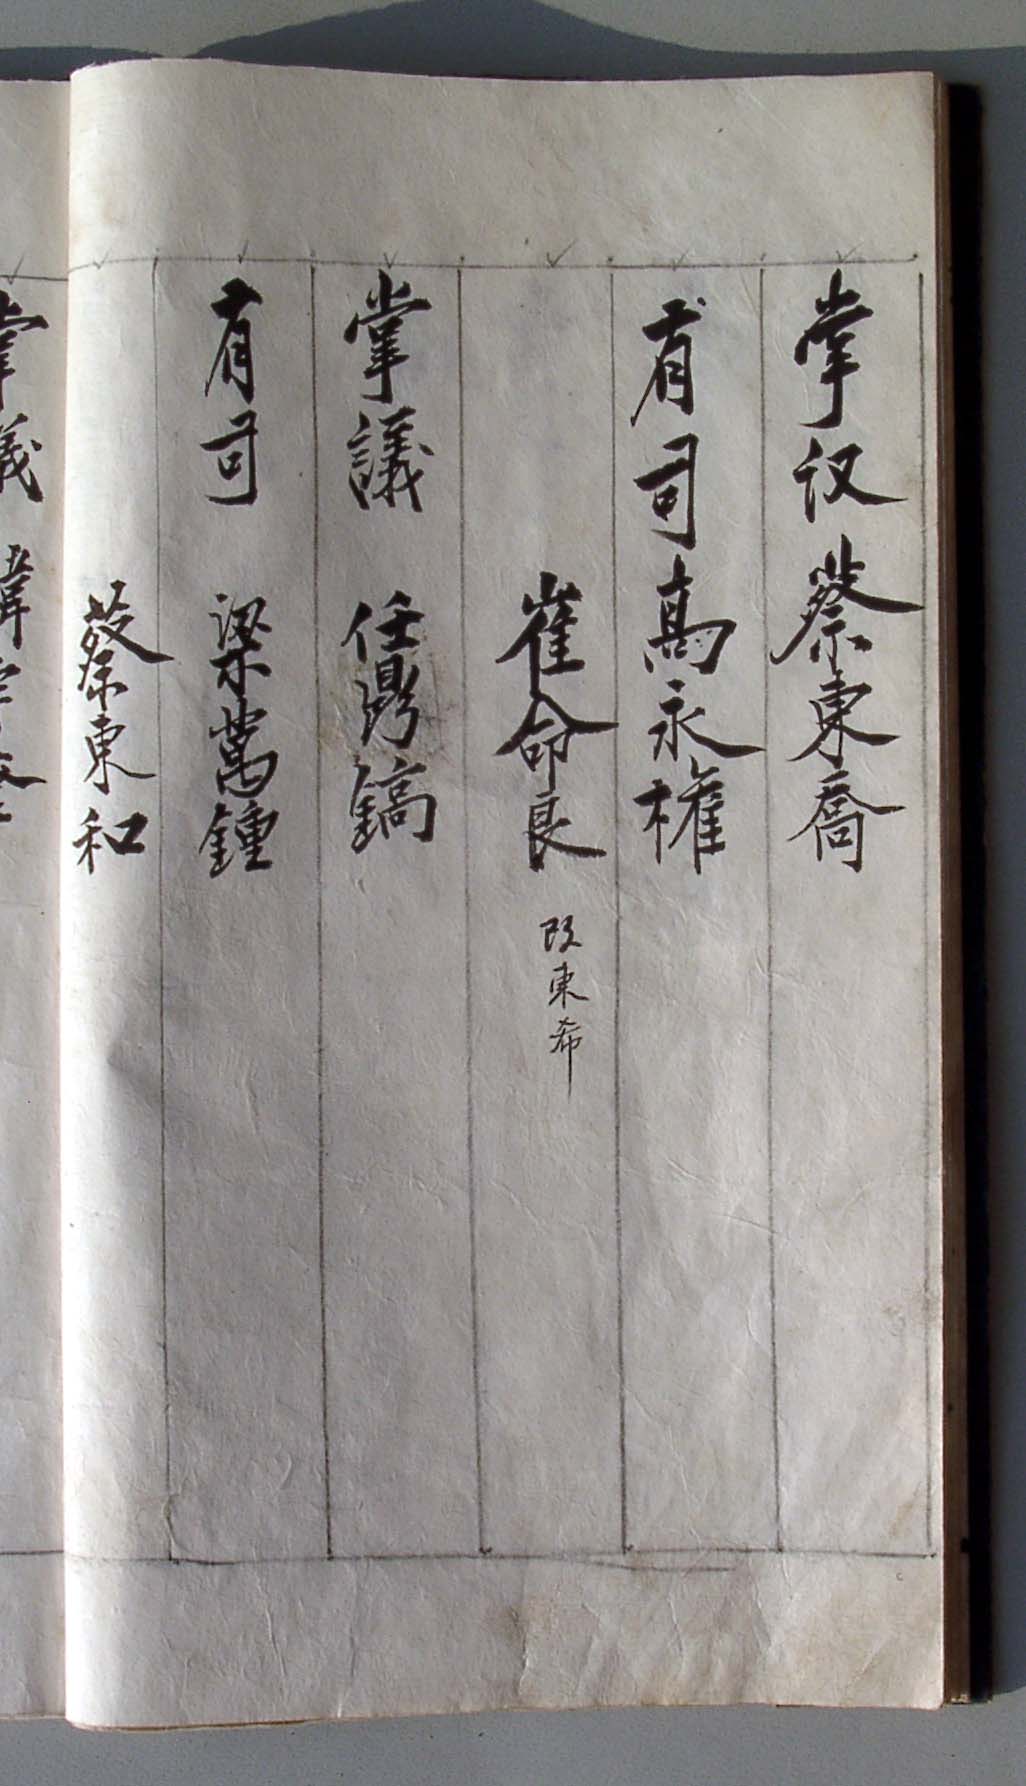 掌议 蔡東喬
有司 高永權
崔命良 改東希
掌議 任鼎鎬
有司 梁萬鍾
蔡東和
掌議